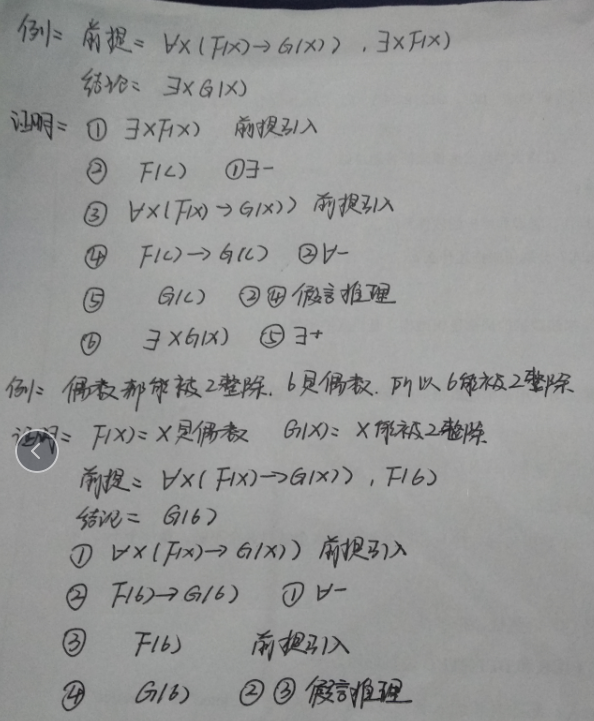 例: 前提: ∀x(F(x)→G(x)), ∃xF(x)
结论: ∃xG(x)
证明: ① ∃xF(x) 前提引入
② F(c) ①∃-
③ ∀x(F(x)→G(x)) 前提引入
④ F(c)→G(c) ②∀-
⑤ G(c) ②④假言推理
⑥ ∃xG(x) ⑤∃+
例: 偶数都能被2整除, 6是偶数. 所以6能被2整除
证明: F(x)= x是偶数 G(x)= x能被2整除
前提= ∀x(F(x)→G(x)), F(6)
结论= G(6)
① ∀x(F(x)→G(x)) 前提引入
② F(6)→G(6) ①∀-
③ F(6) 前提引入
④ G(6) ②③假言推理